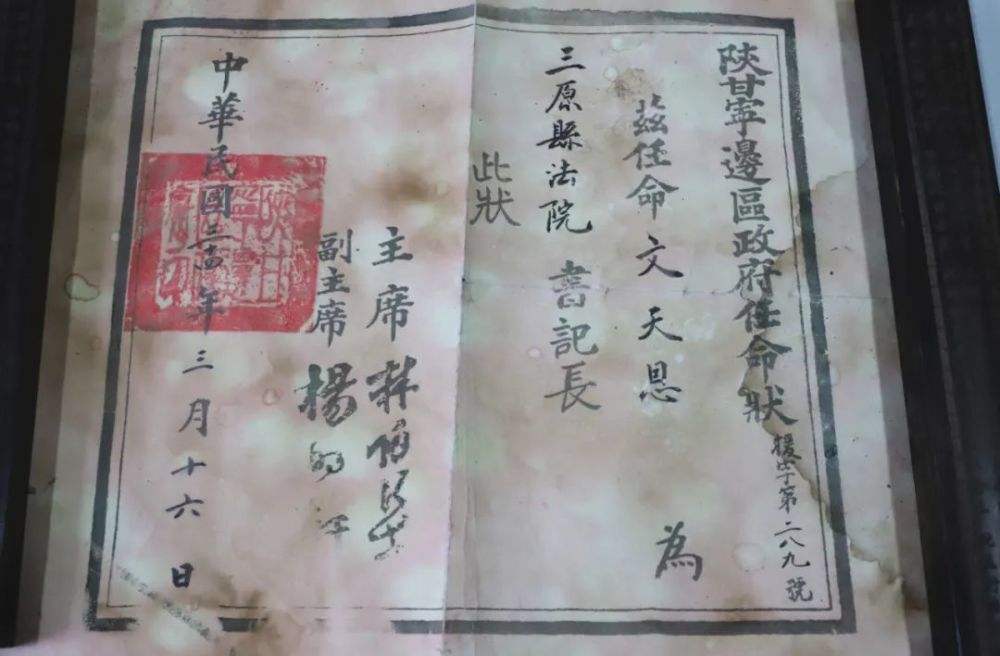 陝甘寧邊區政府任命狀
字第二八九號
茲任命文天恩為
三原縣法院書記長
此狀
主席林伯渠
副主席楊明軒
中華民國三年三月十六日
陝甘